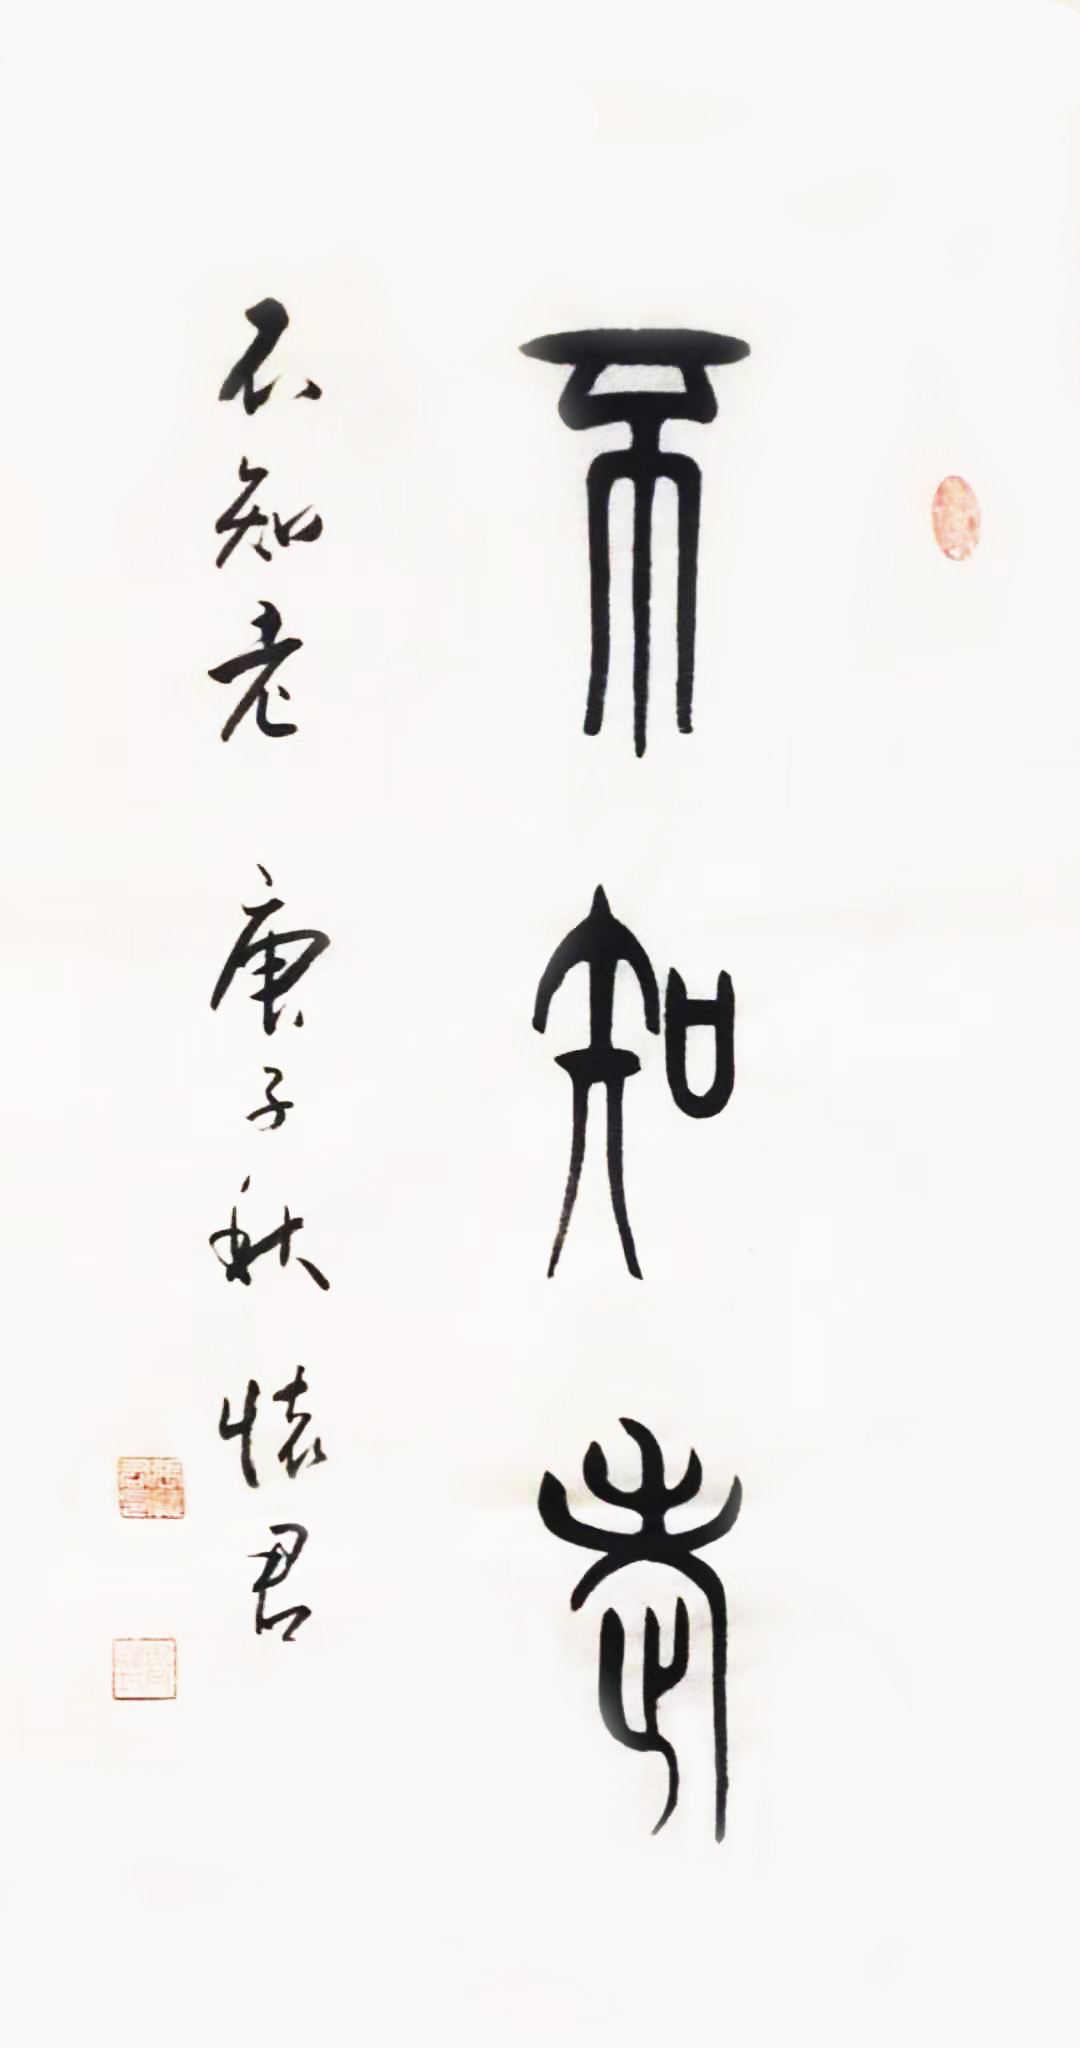 不知老
不知老 庚子秋 懷君